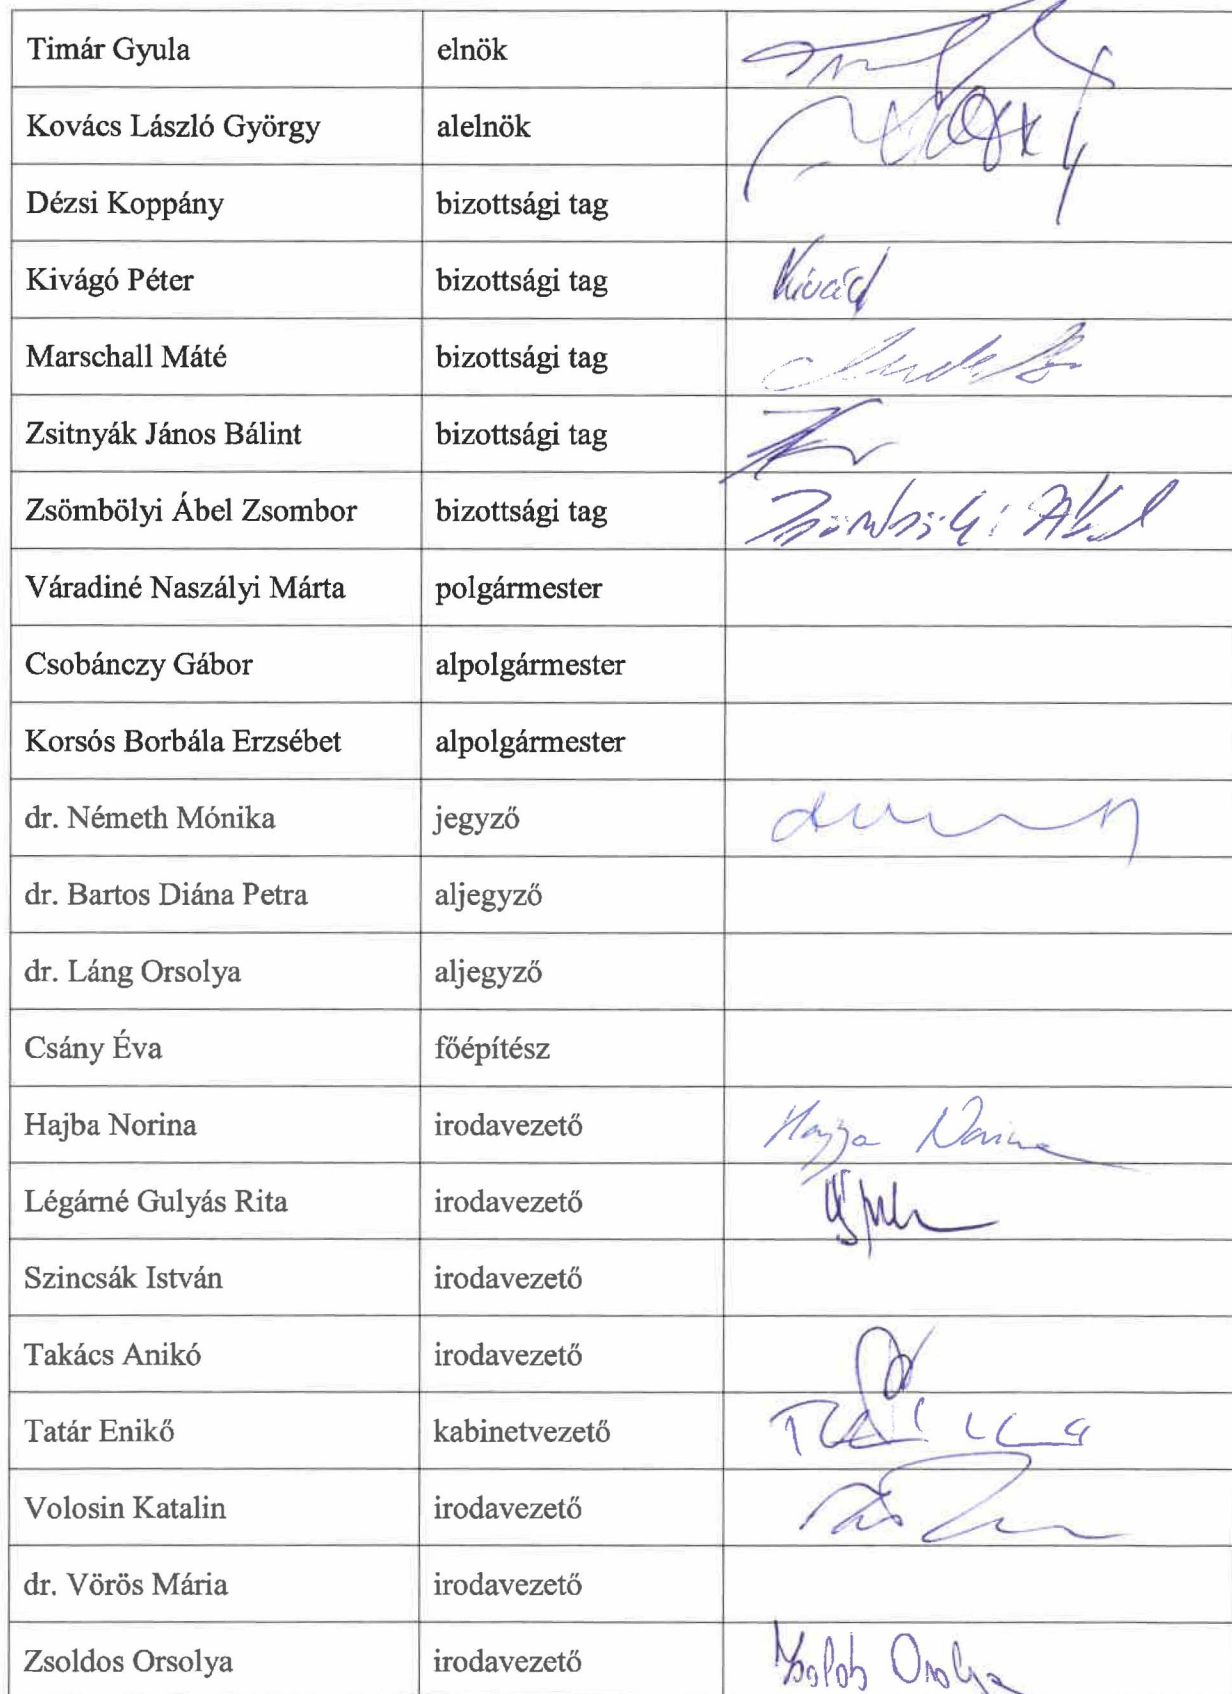 Timár Gyula elnök
Kovács László György alelnök
Dézsi Koppány bizottsági tag
Kivágó Péter bizottsági tag
Marschall Máté bizottsági tag
Zsitnyák János Bálint bizottsági tag
Zsömbölyi Ábel Zsombor bizottsági tag Zsömbölyi Ábel
Váradiné Naszályi Márta polgármester
Csobánczy Gábor alpolgármester
Korsós Borbála Erzsébet alpolgármester
dr. Németh Mónika jegyző
dr. Bartos Diána Petra aljegyző
dr. Láng Orsolya aljegyző
Csány Éva főépítész
Hajba Norina irodavezető Norina
Légárné Gulyás Rita irodavezető
Szincsák István irodavezető
Takács Anikó irodavezető
Tatár Enikő kabinetvezető
Volosin Katalin irodavezető
dr. Vörös Mária irodavezető
Zsoldos Orsolya irodavezető Zsoldos Orsolya